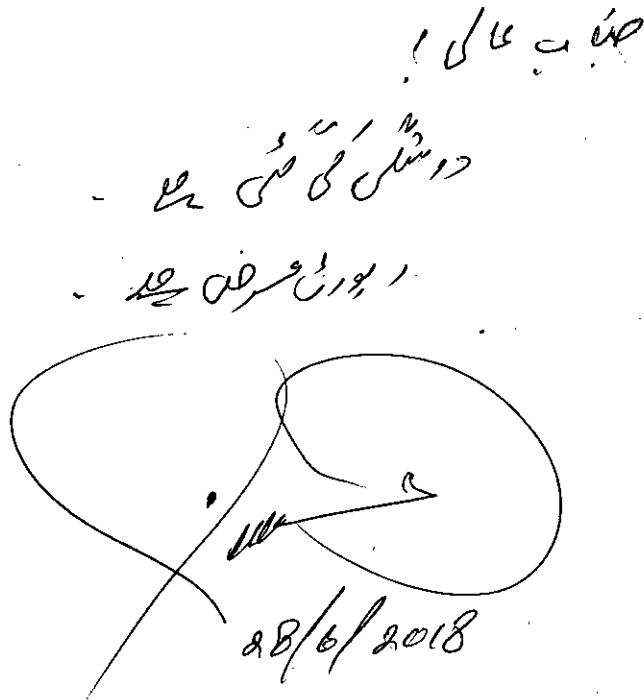 جناب عالی !
درستگی کی گئی ہے ۔
رپورٹ عرض ہے ۔
28/6/2018